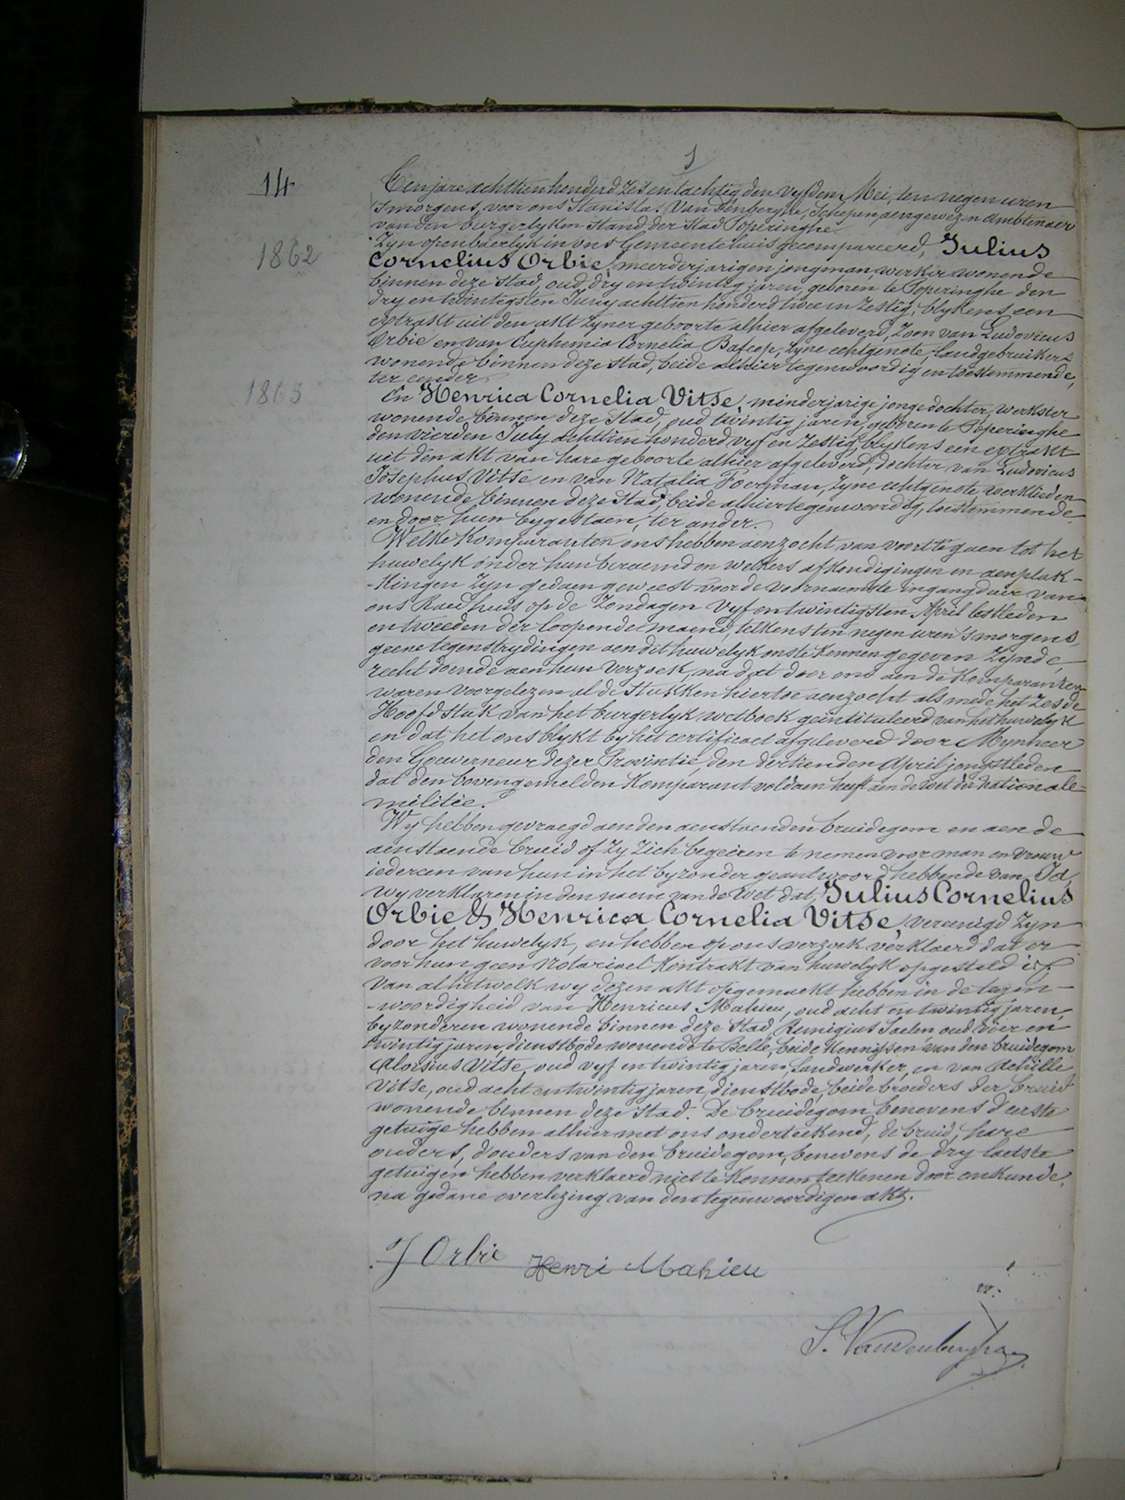 14
1862
1865
Ten jare achttien honderd zes en tachtig den vyfden Mei, ten negen uren
'smorgens, voor ons Stanislas Vandenberghe, Schepen aengewezen Ambtenaer
van den burgerlyken Stand, der Stad Poperinghe.
Zyn openbaerlyk in ons Gemeentehuis gecompareerd, Julius
Cornelius Orbie, meerderjarigen jongman, werker wonende
binnen deze stad, oud dry en twintig jaren, geboren te Poperinghe den
dry en twintigsten Juny achttien honderd twee en zestig, blykens een
extrakt uit den akt zyner geboorte alhier afgeleverd, zoon van Ludovicus
Orbie en van Euphemia Cornelia Bafcop, zyne echtgenote, landgebruikers
wonende binnen deze stad, beide alhier tegenwoordig en toestemmende,
ter eender.
En Henrica Cornelia Vitse, minderjarige jonge dochter, werkster
wonende binnen deze Stad, oud twintig jaren, geboren te Poperinghe
den vierden July achttien honderd vyf en zestig, blykens een extrakt
uit den akt van hare geboorte alhier afgeleverd, dochter van Ludovicus
Josephus Vitse en van Natalia Foerman, zyne echtgenote, werklieden
wonende binnen deze Stad, beide alhier tegenwoordig, toestemmende
en door hun bygestaen, ter ander.
Welke Komparanten ons hebben aenzocht van voort te gaen tot het
huwelyk onder hun beraemd en welkers afkondigingen en aenplak-
-kingen zyn gedaen geweest voor de voornaemste ingangdeur van
ons Raedhuis op de Zondagen vyf en twintigsten April lestleden
en tweeden der loopende maend, telkens ten negen uren 'smorgens,
geene tegenstrydingen aen dit huwelyk ons te kennen gegeven zynde,
recht doende aen hun verzoek, na dat door ons aen de Komparanten
waren voorgelezen al de Stukken hiertoe aenzocht als mede het zesde
Hoofdstuk van het burgerlyk wetboek geintituleerd van het huwelyk
en dat het ons blykt by het certificaet afgeleverd door Mynheer
den Gouverneur dezer Provintie, den dertienden April jongstleden
dat den bovengemelden Komparant voldaen heeft aen de wet der nationale
militie.
Wy hebben gevraegd aen den aenstaenden bruidegom en aen de
aenstaende bruid of zy zich begeeren te nemen voor man en vrouw
iedereen van hun in het byzonder geantwoord hebbende van Ja,
wy verklaren in den naem van de Wet dat, Julius Cornelius
Orbie & Henrica Cornelia Vitse, vereenigd zyn
door het huwelyk, en hebben op ons verzoek verklaerd dat er
voor hun geen Notariael Kontrakt van huwelyk opgesteld is.
Van al hetwelk wy dezen akt opgemaekt hebben in de tegen-
-woordigheid van Henricus Mahieu, oud acht en twintig jaren,
byzonderen wonende binnen deze Stad, Remigius Saelen oud vier en
twintig jaren, dienstbode wonende te Belle, beide Kennissen van den bruidegom
Aloisius Vitse, oud vyf en twintig jaren, landwerker, en van Achille
Vitse, oud acht en twintig jaren, dienstbode, beide broeders der bruid
wonende binnen deze stad. De bruidegom benevens d'eerste
getuige hebben alhier met ons onderteekend, de bruid, hare
ouders, d'ouders van den bruidegom, benevens de dry laetste
getuigen hebben verklaerd niet te konnen teekenen door onkunde,
na gedane overlezing van den tegenwoordigen akt.
J Orbie Henri Mahieu
S. Vandenberghe